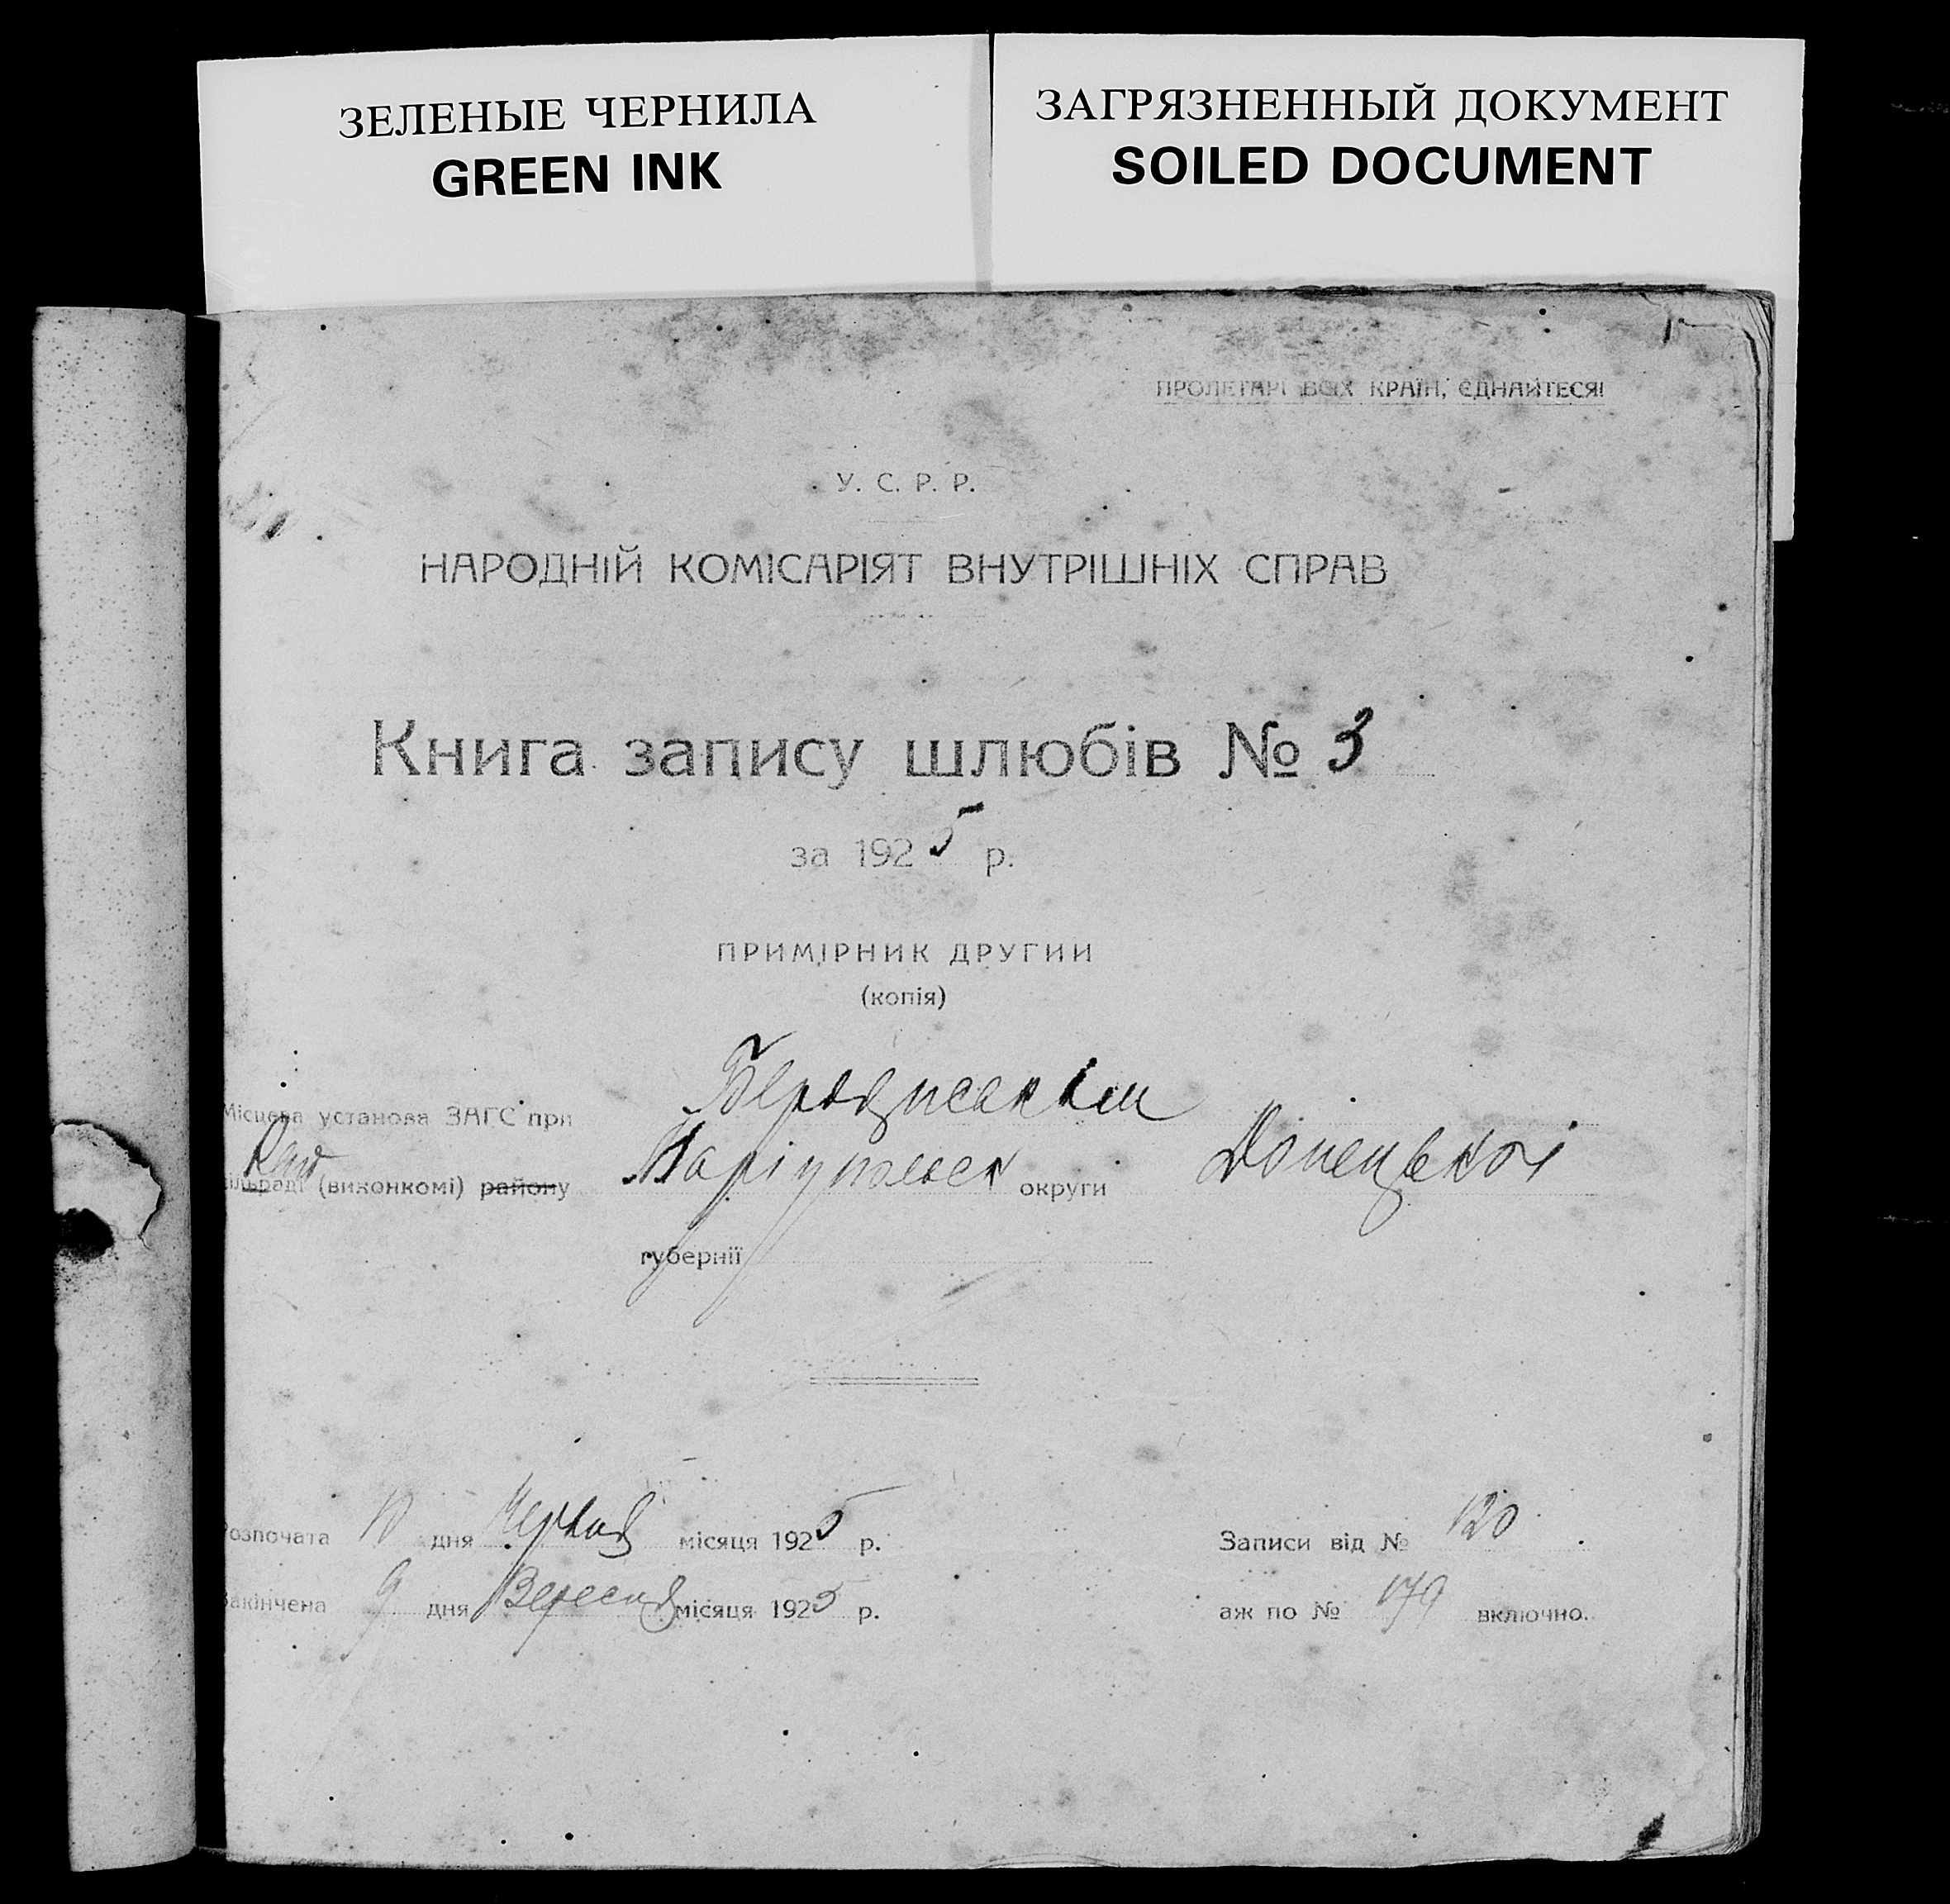 ЗЕЛЕНЫЕ ЧЕРНИЛА
GREEN INK
ЗАГРЯЗНЕННЫЙ ДОКУМЕНТ
SOILED DOCUMENT
ПРОЛЕТАРІ ВСІХ КРАЇН, ЄДНАЙТЕСЯ!
У. С. Р. Р.
НАРОДНІЙ КОМІСАРІЯТ ВНУТРІШНІХ СПРАВ
Книга запису шлюбів № 3
за 1925 р.
ПРИМІРНИК ДРУГИЙ
(копія)
Місцева установа ЗАГС при
Рай
сільраді (виконкомі) району Маріупольск округи Донецької
губернії
Розпочата 10 дня Червня місяця 1925 р. Записи від № 120
Закінчена 9 дня Вересня місяця 1925 р. аж по № 179 включно.